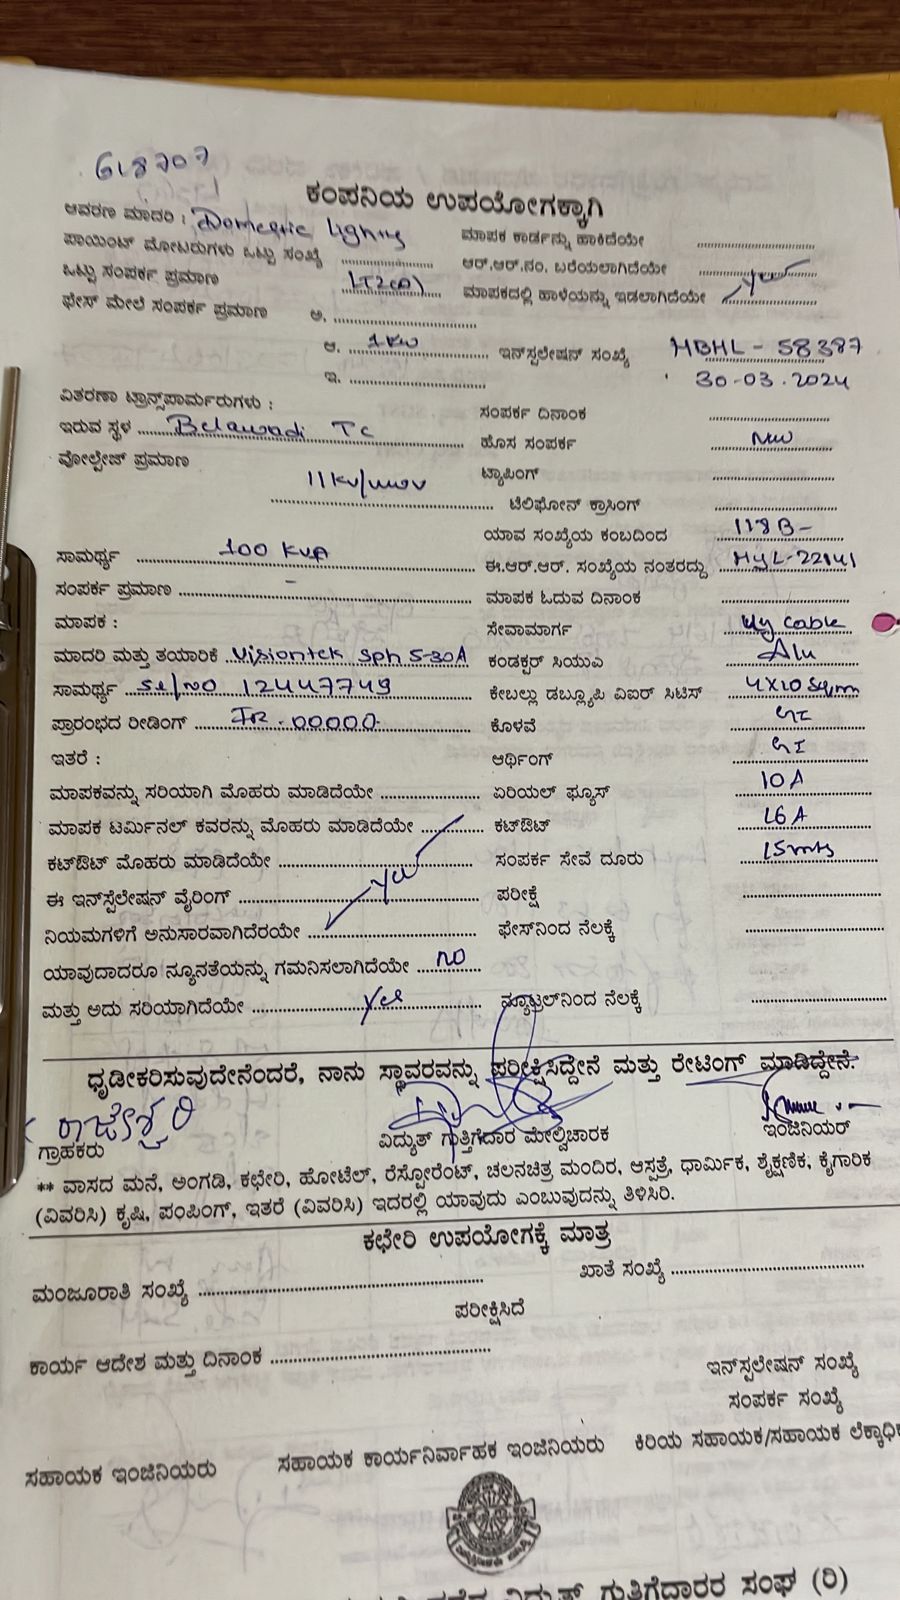 618707
ಕಂಪನಿಯ ಉಪಯೋಗಕ್ಕಾಗಿ
ಆವರಣ ಮಾದರಿ : Domestic lighting
ಮಾಪಕ ಕಾರ್ಡನ್ನು ಹಾಕಿದೆಯೇ
ಪಾಯಿಂಟ್ ಮೋಟರುಗಳು ಒಟ್ಟು ಸಂಖ್ಯೆ
ಆರ್.ಆರ್.ನಂ. ಬರೆಯಲಾಗಿದೆಯೇ
ಒಟ್ಟು ಸಂಪರ್ಕ ಪ್ರಮಾಣ LT2(a)
ಮಾಪಕದಲ್ಲಿ ಹಾಳೆಯನ್ನು ಇಡಲಾಗಿದೆಯೇ yes
ಫೇಸ್ ಮೇಲೆ ಸಂಪರ್ಕ ಪ್ರಮಾಣ ಅ.
ಆ. 1kw ಇನ್‌ಸ್ಪಲೇಷನ್ ಸಂಖ್ಯೆ HBHL - 58387
ಇ. 30-03.2024
ವಿತರಣಾ ಟ್ರಾನ್ಸ್‌ಪಾರ್ಮರುಗಳು :
ಸಂಪರ್ಕ ದಿನಾಂಕ
ಇರುವ ಸ್ಥಳ Belawadi Tc
ಹೊಸ ಸಂಪರ್ಕ New
ವೋಲ್ಟೇಜ್ ಪ್ರಮಾಣ 11kv/
ಟ್ಯಾಪಿಂಗ್
ಟೆಲಿಫೋನ್ ಕ್ರಾಸಿಂಗ್
ಯಾವ ಸಂಖ್ಯೆಯ ಕಂಬದಿಂದ 118B-
ಸಾಮರ್ಥ್ಯ 100 KVA
ಈ.ಆರ್.ಆರ್. ಸಂಖ್ಯೆಯ ನಂತರದ್ದು HyL-22141
ಸಂಪರ್ಕ ಪ್ರಮಾಣ -
ಮಾಪಕ ಓದುವ ದಿನಾಂಕ
ಮಾಪಕ :
ಸೇವಾಮಾರ್ಗ Ug cable
ಮಾದರಿ ಮತ್ತು ತಯಾರಿಕೆ Visiontek Sph 5-30A
ಕಂಡಕ್ಟರ್ ಸಿಯುಎ Alu
ಸಾಮರ್ಥ್ಯ Sl/no 12447749
ಕೇಬಲ್ಲು ಡಬ್ಲ್ಯೂಪಿ ವಿಐರ್ ಸಿಟಿಸ್ 4x10 Sqmm
ಪ್ರಾರಂಭದ ರೀಡಿಂಗ್ IR-00000
ಕೊಳವೆ GI
ಇತರೆ :
ಆರ್ಥಿಂಗ್ GI
ಮಾಪಕವನ್ನು ಸರಿಯಾಗಿ ಮೊಹರು ಮಾಡಿದೆಯೇ
ಏರಿಯಲ್ ಫ್ಯೂಸ್ 10A
ಮಾಪಕ ಟರ್ಮಿನಲ್ ಕವರನ್ನು ಮೊಹರು ಮಾಡಿದೆಯೇ
ಕಟ್‌ಔಟ್ 16A
ಕಟ್‌ಔಟ್ ಮೊಹರು ಮಾಡಿದೆಯೇ yes
ಸಂಪರ್ಕ ಸೇವೆ ದೂರು 15mts
ಈ ಇನ್‌ಸ್ಪೆಲೇಷನ್ ವೈರಿಂಗ್
ಪರೀಕ್ಷೆ
ನಿಯಮಗಳಿಗೆ ಅನುಸಾರವಾಗಿದೆರಯೇ
ಫೇಸ್‌ನಿಂದ ನೆಲಕ್ಕೆ
ಯಾವುದಾದರೂ ನ್ಯೂನತೆಯನ್ನು ಗಮನಿಸಲಾಗಿದೆಯೇ no
ಮತ್ತು ಅದು ಸರಿಯಾಗಿದೆಯೇ yes
ನ್ಯೂಟ್ರಲ್‌ನಿಂದ ನೆಲಕ್ಕೆ
ಧೃಡೀಕರಿಸುವುದೇನೆಂದರೆ, ನಾನು ಸ್ಥಾವರವನ್ನು ಪರೀಕ್ಷಿಸಿದ್ದೇನೆ ಮತ್ತು ರೇಟಿಂಗ್ ಮಾಡಿದ್ದೇನೆ.
ರಾಜೇಶ್ವರಿ
ಗ್ರಾಹಕರು
ವಿದ್ಯುತ್ ಗುತ್ತಿಗೆದಾರ ಮೇಲ್ವಿಚಾರಕ
ಇಂಜಿನಿಯರ್
** ವಾಸದ ಮನೆ, ಅಂಗಡಿ, ಕಛೇರಿ, ಹೋಟೆಲ್, ರೆಸ್ಟೋರೆಂಟ್, ಚಲನಚಿತ್ರ ಮಂದಿರ, ಆಸ್ಪತ್ರೆ, ಧಾರ್ಮಿಕ, ಶೈಕ್ಷಣಿಕ, ಕೈಗಾರಿಕ
(ವಿವರಿಸಿ) ಕೃಷಿ, ಪಂಪಿಂಗ್, ಇತರೆ (ವಿವರಿಸಿ) ಇದರಲ್ಲಿ ಯಾವುದು ಎಂಬುವುದನ್ನು ತಿಳಿಸಿರಿ.
ಕಛೇರಿ ಉಪಯೋಗಕ್ಕೆ ಮಾತ್ರ
ಮಂಜೂರಾತಿ ಸಂಖ್ಯೆ
ಖಾತೆ ಸಂಖ್ಯೆ
ಪರೀಕ್ಷಿಸಿದೆ
ಕಾರ್ಯ ಆದೇಶ ಮತ್ತು ದಿನಾಂಕ
ಇನ್‌ಸ್ಪಲೇಷನ್ ಸಂಖ್ಯೆ
ಸಂಪರ್ಕ ಸಂಖ್ಯೆ
ಸಹಾಯಕ ಇಂಜಿನಿಯರು
ಸಹಾಯಕ ಕಾರ್ಯನಿರ್ವಾಹಕ ಇಂಜಿನಿಯರು
ಕಿರಿಯ ಸಹಾಯಕ/ಸಹಾಯಕ ಲೆಕ್ಕಾಧಿಕ
ವಿದ್ಯುತ್ ಗುತ್ತಿಗೆದಾರರ ಸಂಘ (ರಿ)